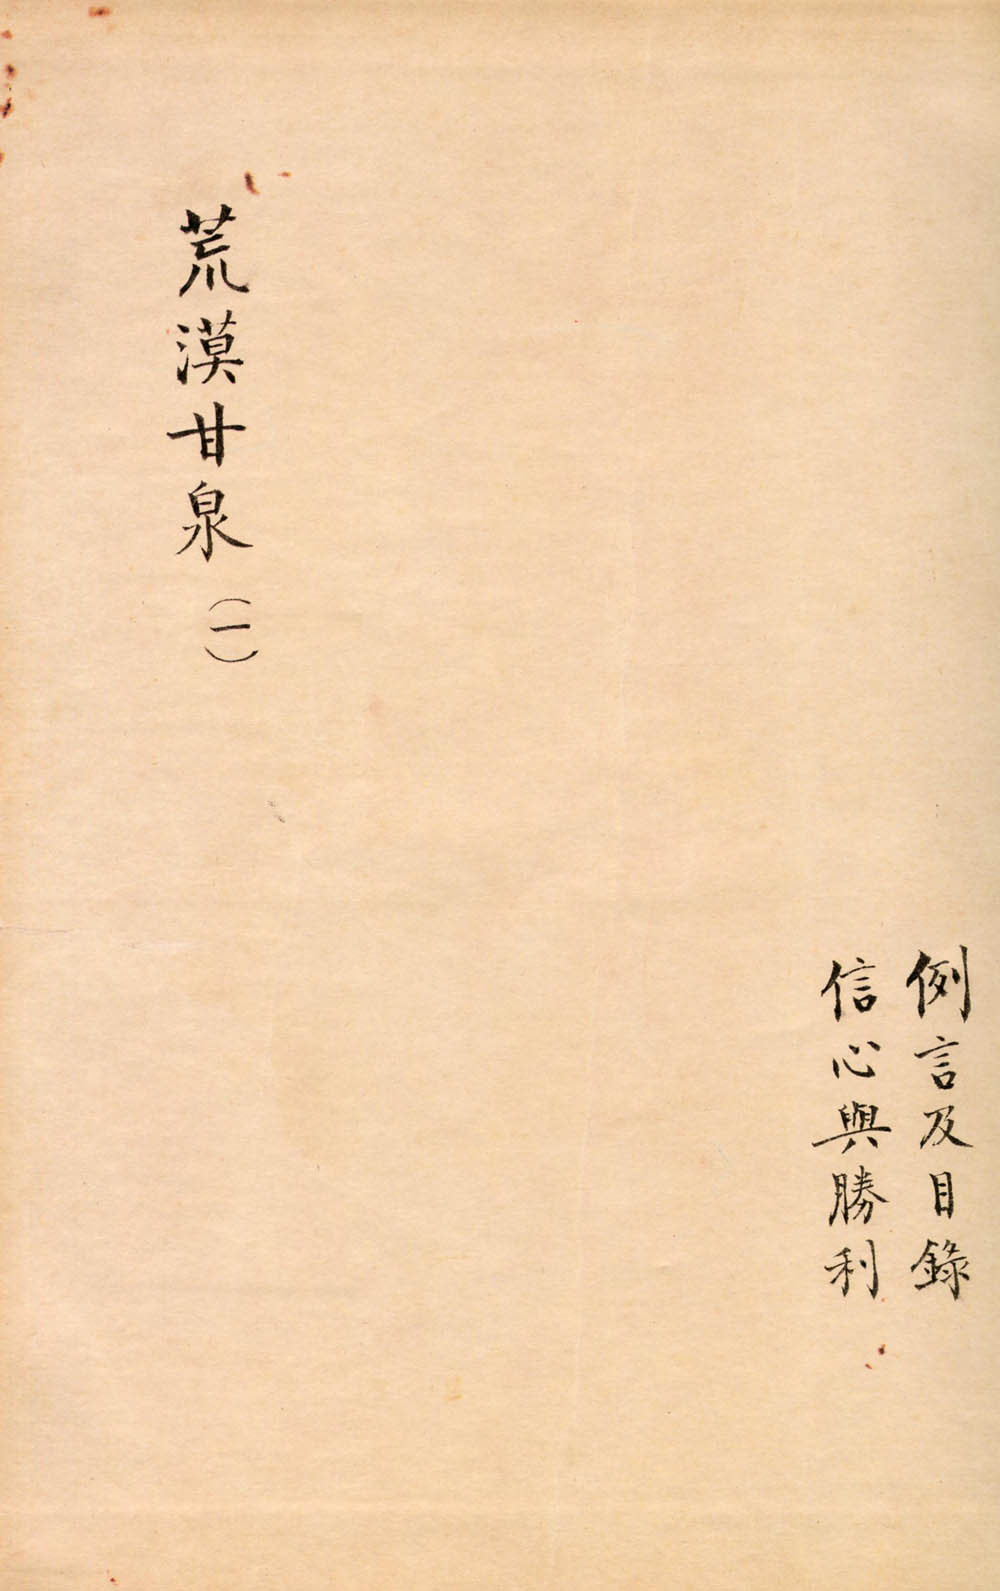 例言及目錄
信心與勝利
荒漠甘泉(一)